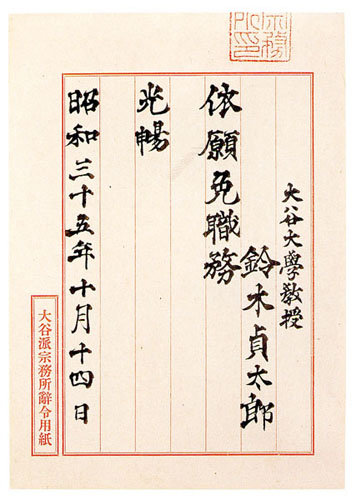 大谷大學教授
鈴木貞太郎
依願免職務
光暢
昭和三十五年十月十四日
大谷派宗務所辭令用紙